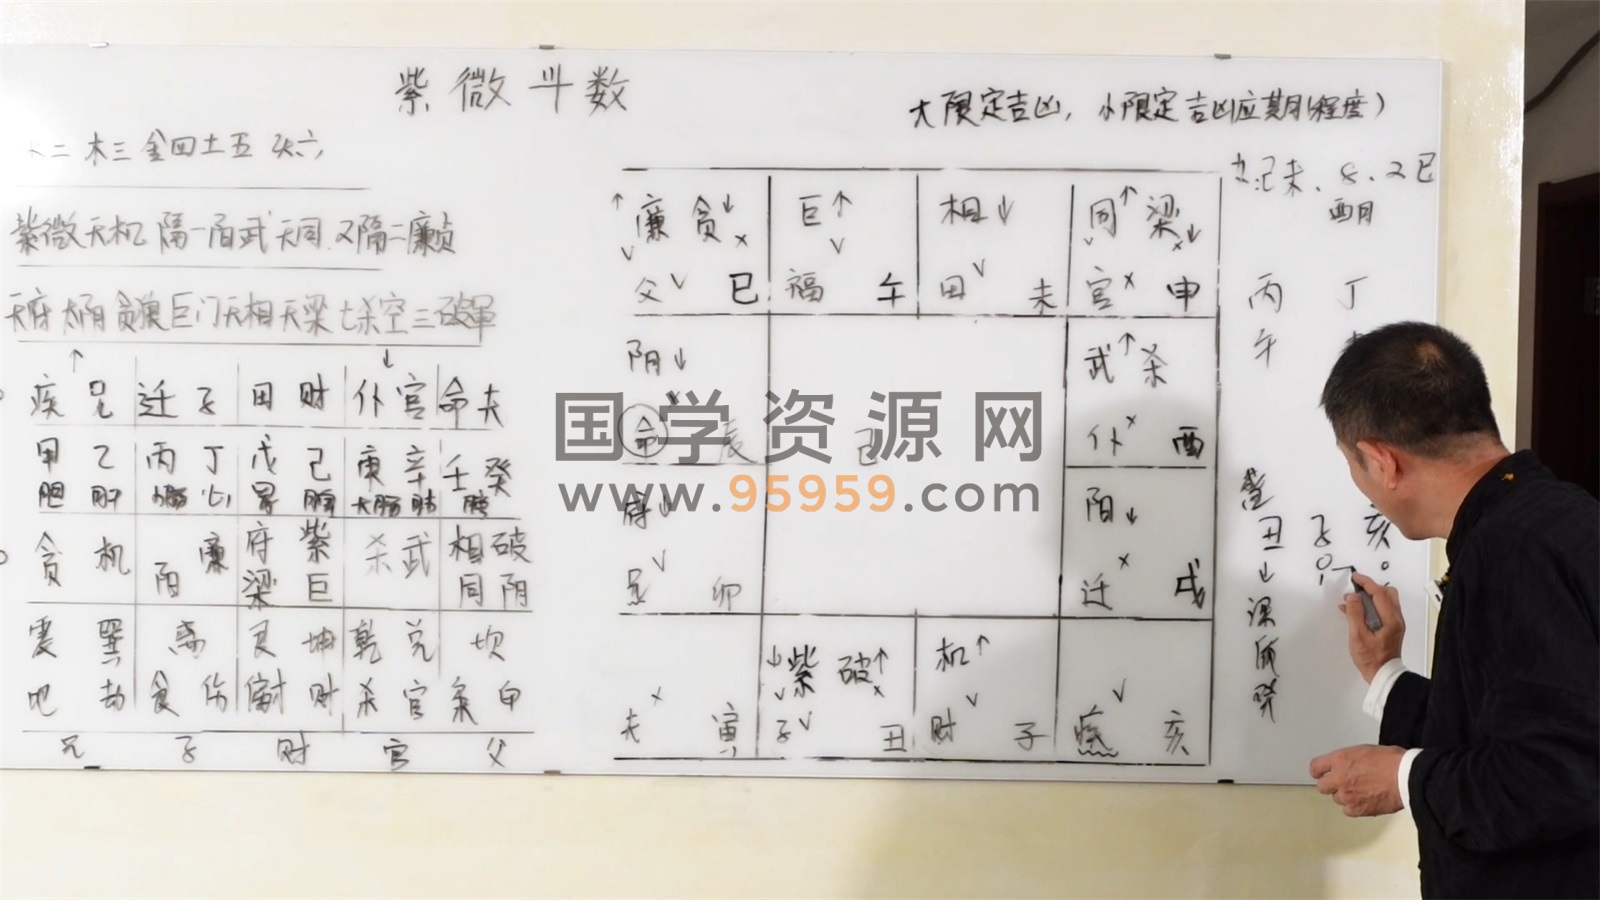 紫微斗数
大限定吉凶，小限定吉凶应期(程度)
二 木三 金四 土五 火六
紫微天机 隔一阳武天同 又隔二廉贞
天府太阴贪狼巨门天相天梁七杀空三破军
↑ ↓
疾 兄 迁 子 田 财 仆 官 命 夫
甲 乙 丙 丁 戊 己 庚 辛 壬 癸
胆 肝 小肠 心 胃 脾 大肠 肺
贪 机 阳 廉 府 紫 杀 武 相 破
梁 巨 同 阴
震 巽 离 艮 坤 乾 兑 坎
比 劫 食 伤 财 杀 官 枭
兄 子 财 官 父
↑廉 贪↓
父 巳
巨↑
福 午
相↓
田 未
同↑ 梁↓
官 申
阴↓
命 辰
武↑ 杀
仆 酉
府↓
兄 卯
阳↓
迁 戌
夫 寅
↓紫 破↑
子 丑
机↑
财 子
疾 亥
己
未、8、2巳
酉月
丙 丁
午
丑 子 亥
↓
国学资源网
www.95959.com